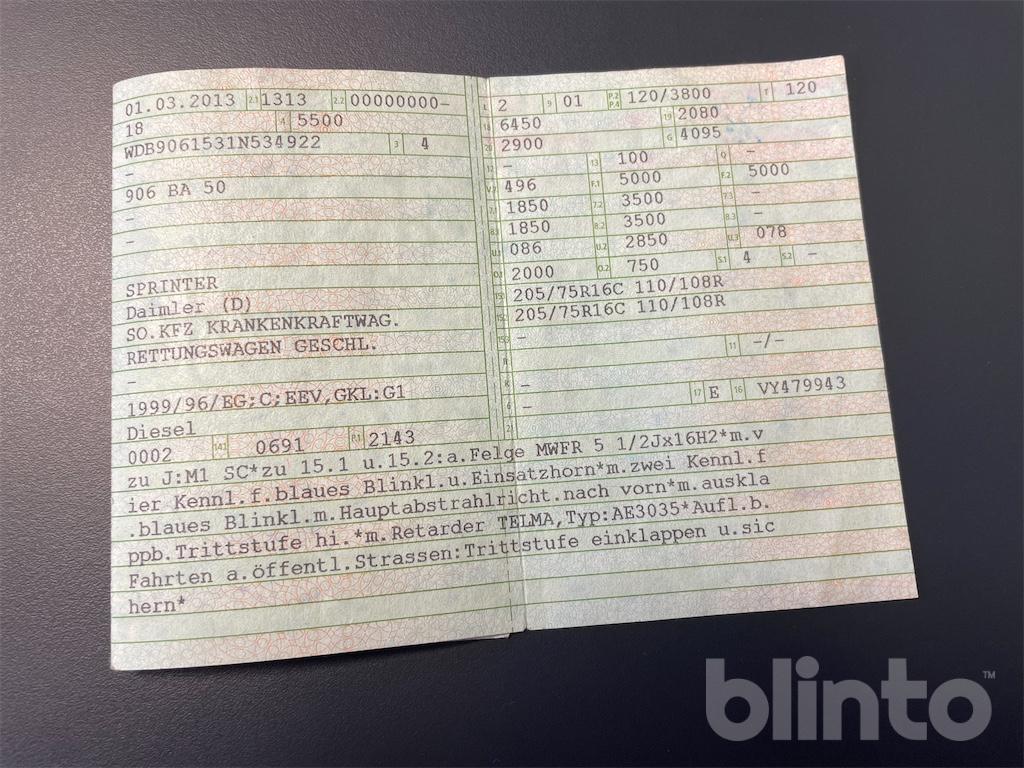 01.03.2013 2.1 1313 2.2 00000000-
18 4 5500
WDB9061531N534922 3 4
-
906 BA 50
-
-
SPRINTER
Daimler (D)
SO.KFZ KRANKENKRAFTWAG.
RETTUNGSWAGEN GESCHL.
-
1999/96/EG;C;EEV,GKL:G1
Diesel
0002 14.1 0691 P.1 2143
L 2 9 01 P.2 P.4 120/3800 T 120
18 6450 19 2080
20 2900 G 4095
12 - 13 100 Q -
V.7 496 F.1 5000 F.2 5000
7.1 1850 7.2 3500 7.3 -
8.1 1850 8.2 3500 8.3 -
U.1 086 U.2 2850 U.3 078
O.1 2000 O.2 750 S.1 4 S.2 -
15.1 205/75R16C 110/108R
15.2 205/75R16C 110/108R
15.3 -
R 11 -/-
K -
6 - 17 E 16 VY479943
21
zu J:M1 SC*zu 15.1 u.15.2:a.Felge MWFR 5 1/2Jx16H2*m.v
ier Kennl.f.blaues Blinkl.u.Einsatzhorn*m.zwei Kennl.f
.blaues Blinkl.m.Hauptabstrahlricht.nach vorn*m.auskla
ppb.Trittstufe hi.*m.Retarder TELMA,Typ:AE3035*Aufl.b.
Fahrten a.öffentl.Strassen:Trittstufe einklappen u.sic
hern*
blinto™